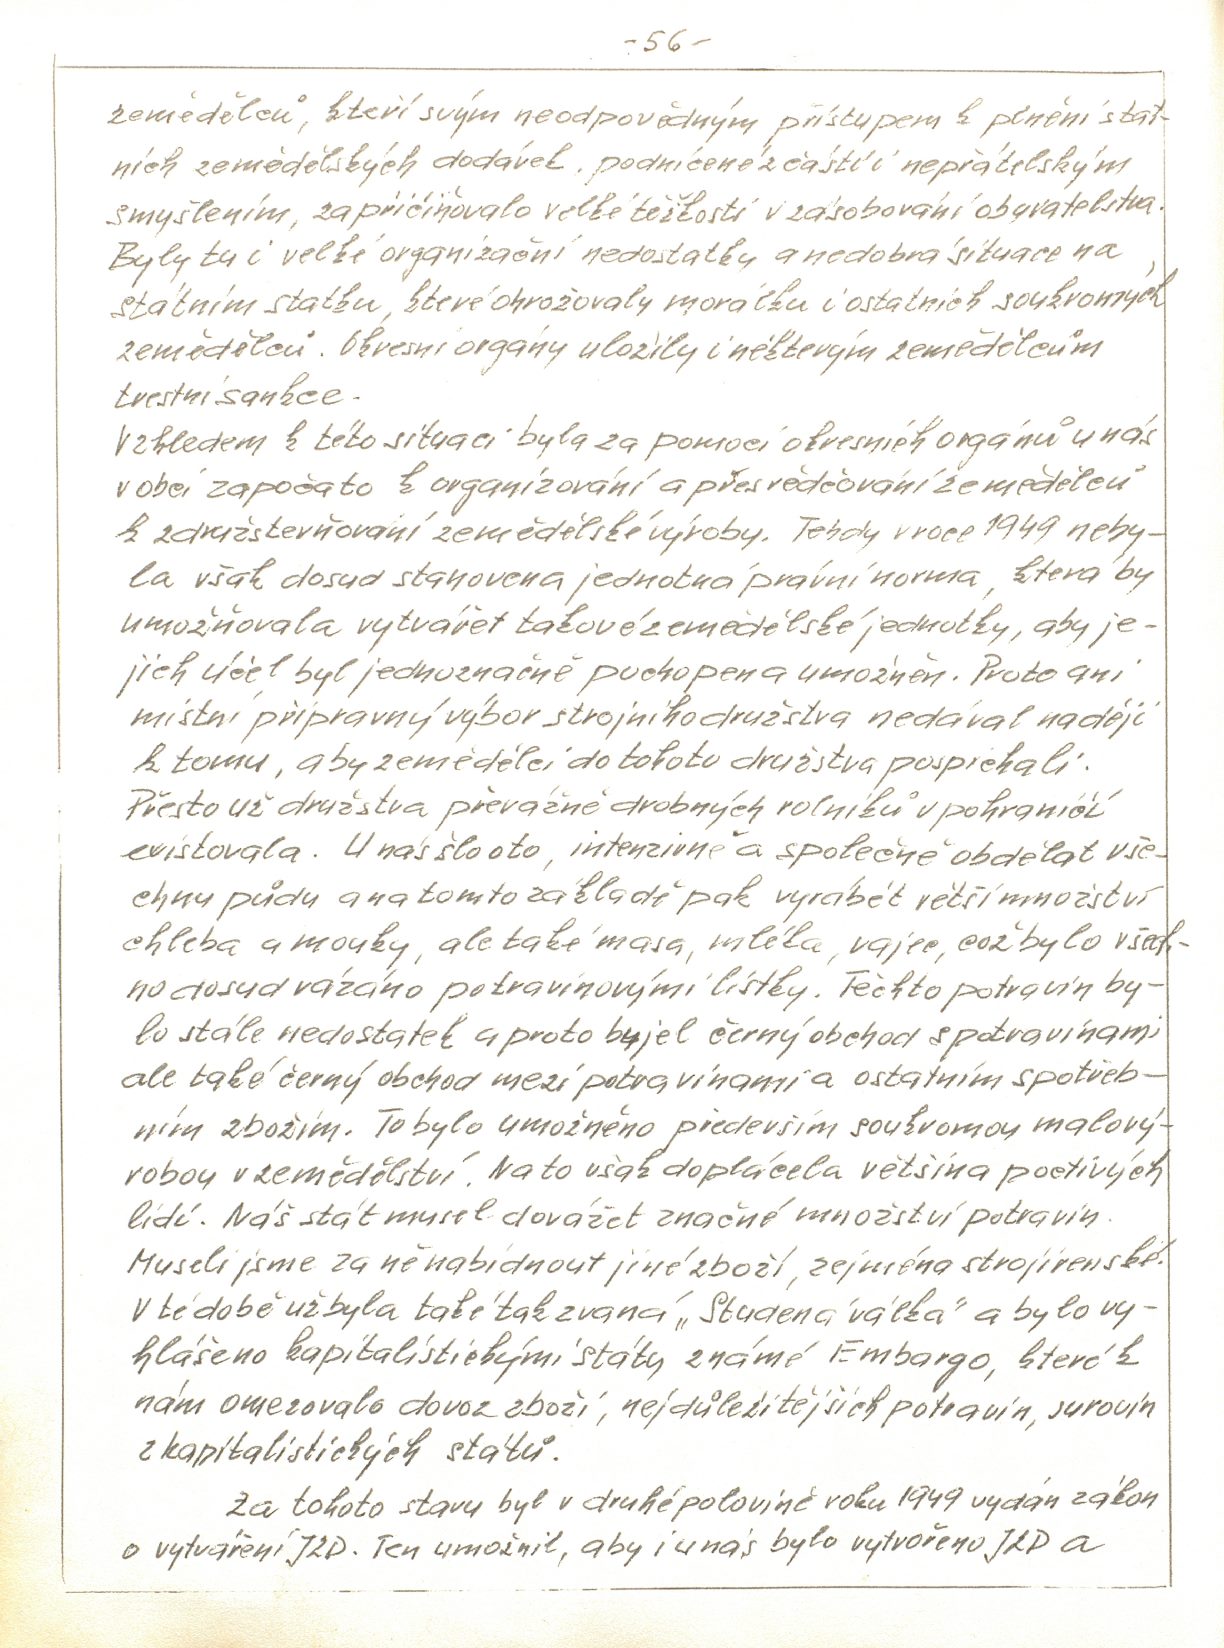 -56-
zemědělců, kteří svým neodpovědným přístupem k plnění stát-
ních zemědělských dodávek, podnícené z části i nepřátelským
smyšlením, zapříčiňovalo velké těžkosti v zásobování obyvatelstva.
Byly tu i velké organizační nedostatky a nedobrá situace na
státním statku, které ohrožovaly morálku i ostatních soukromých
zemědělců. Okresní orgány uložily i některým zemědělcům
trestní sankce.
Vzhledem k této situaci byla za pomoci okresních orgánů u nás
v obci započato k organizování a přesvědčování zemědělců
k združstevňování zemědělské výroby. Tehdy v roce 1949 neby-
la však dosud stanovena jednotná právní norma, která by
umožňovala vytvářet takové zemědělské jednotky, aby je-
jich účel byl jednoznačně pochopen a umožněn. Proto ani
místní přípravný výbor strojního družstva nedával naději
k tomu, aby zemědělci do tohoto družstva pospíchali.
Přesto už družstva převážně drobných rolníků v pohraničí
existovala. U nás šlo o to, intenzivně a společně obdělat vše-
chnu půdu a na tomto základě pak vyrábět větší množství
chleba a mouky, ale také masa, mléka, vajec, což bylo všech-
no dosud vázáno potravinovými lístky. Těchto potravin by-
lo stále nedostatek a proto bujel černý obchod s potravinami
ale také černý obchod mezi potravinami a ostatním spotřeb-
ním zbožím. To bylo umožněno především soukromou malový-
robou v zemědělství. Na to však doplácela většina poctivých
lidí. Náš stát musel dovážet značné množství potravin.
Museli jsme za ně nabídnout jiné zboží, zejména strojírenské.
V té době už byla také tak zvaná „Studená válka" a bylo vy-
hlášeno kapitalistickými státy známé Embargo, které k
nám omezovalo dovoz zboží, nejdůležitějších potravin, surovin
z kapitalistických států.
Za tohoto stavu byl v druhé polovině roku 1949 vydán zákon
o vytváření JZD. Ten umožnil, aby i u nás bylo vytvořeno JZD a